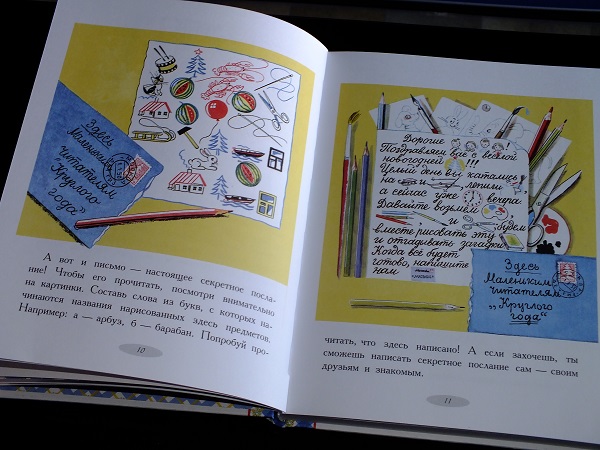 Здесь
Маленьким
читателям
„Круглого
года"
А вот и письмо — настоящее секретное посла-
ние! Чтобы его прочитать, посмотри внимательно
на картинки. Составь слова из букв, с которых на-
чинаются названия нарисованных здесь предметов.
Например: а — арбуз, б — барабан. Попробуй про-
10
Дорогие
Поздравляем вас с весёлой
новогодней !!!
Целый день вы катались
на и лепили
а сейчас уже вечера
Давайте возьмём
и будем
вместе рисовать эту
и отгадывать загадки.
Когда всё будет
готово, напишите
нам
Здесь
Маленьким
читателям
„Круглого
года"
читать, что здесь написано! А если захочешь, ты
сможешь написать секретное послание сам — своим
друзьям и знакомым.
11